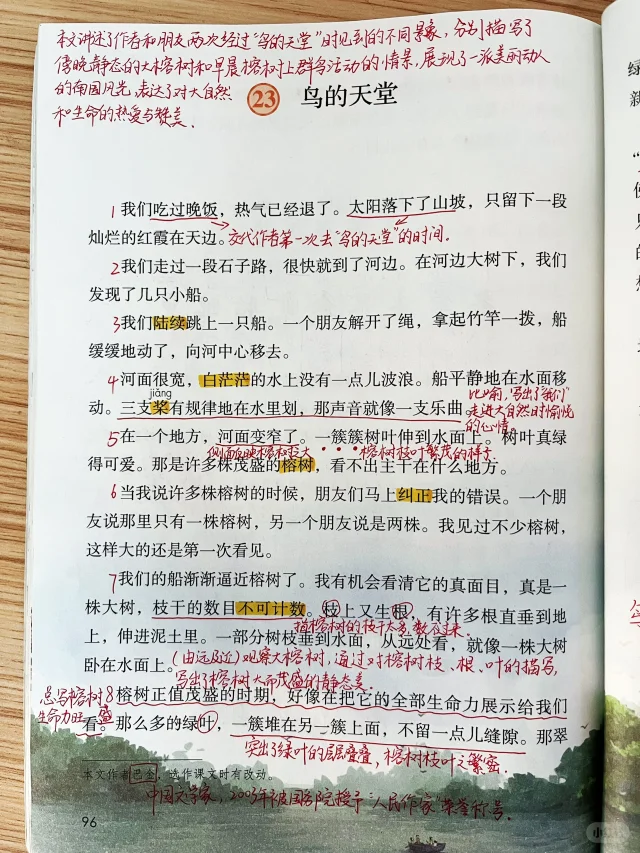 本文讲述了作者和朋友两次经过“鸟的天堂”时见到的不同景象，分别描写了
傍晚静态的大榕树和早晨榕树上群鸟活动的情景，展现了一派美丽动人
的南国风光，表达了对大自然
和生命的热爱与赞美．
23 鸟的天堂
1 我们吃过晚饭，热气已经退了。太阳落下了山坡，只留下一段
灿烂的红霞在天边。交代作者第一次去“鸟的天堂”的时间．
2 我们走过一段石子路，很快就到了河边。在河边大树下，我们
发现了几只小船。
3 我们陆续跳上一只船。一个朋友解开了绳，拿起竹竿一拨，船
缓缓地动了，向河中心移去。
4 河面很宽，白茫茫的水上没有一点儿波浪。船平静地在水面移
jiǎng
动。三支桨有规律地在水里划，那声音就像一支乐曲
比喻，写出了“我们”
走进大自然时愉悦
的心情。
5 在一个地方，河面变窄了。一簇簇树叶伸到水面上。树叶真绿
侧面反映榕树大 榕树枝叶繁茂的样子
得可爱。那是许多株茂盛的榕树，看不出主干在什么地方。
6 当我说许多株榕树的时候，朋友们马上纠正我的错误。一个朋
友说那里只有一株榕树，另一个朋友说是两株。我见过不少榕树，
这样大的还是第一次看见。
7 我们的船渐渐逼近榕树了。我有机会看清它的真面目，真是一
株大树，枝干的数目不可计数。枝上又生根，有许多根直垂到地
指榕树的枝干太多，数不过来．
上，伸进泥土里。一部分树枝垂到水面，从远处看，就像一株大树
卧在水面上。（由远及近）观察大榕树，通过对榕树枝、根、叶的描写，
写出了榕树大而茂盛的静态美．
总写榕树
生命力旺盛
8 榕树正值茂盛的时期，好像在把它的全部生命力展示给我们
看。那么多的绿叶，一簇堆在另一簇上面，不留一点儿缝隙。那翠
突出了绿叶的层层叠叠，榕树枝叶之繁密．
本文作者巴金，选作课文时有改动。
中国文学家，2003年被国务院授予“人民作家”荣誉称号．
96